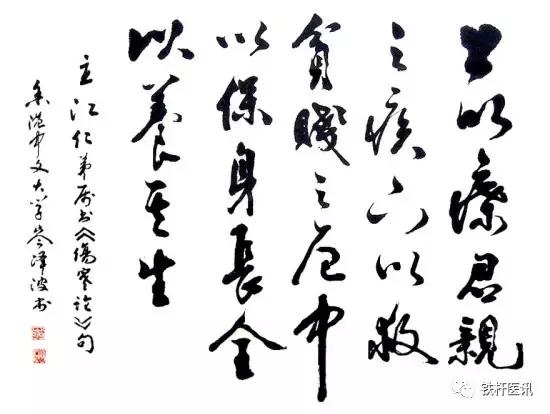 上以療君親
之疾下以救
貧賤之厄中
以保身長全
以養其生
立江仁弟属书《傷寒論》句
香港中文大学岑泽波书
铁杆医讯